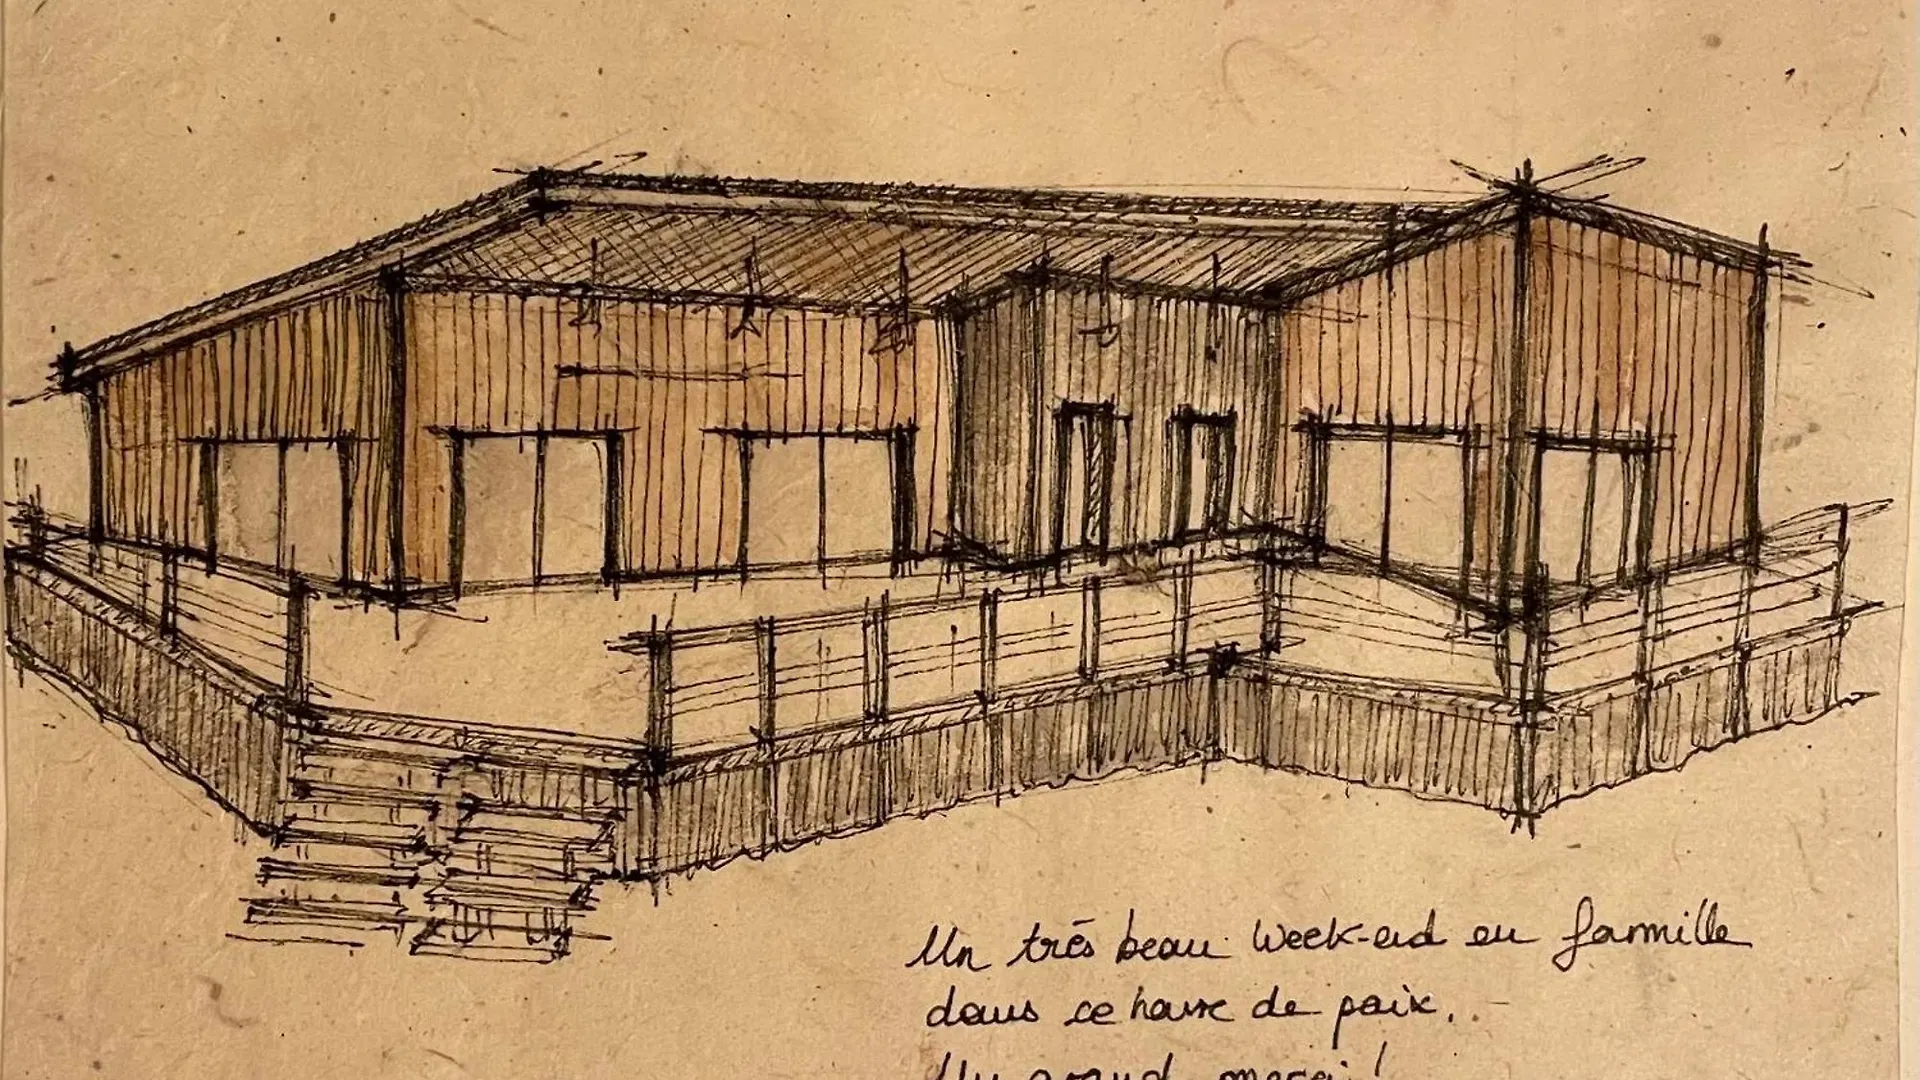 Un très beau week-end en famille
dans ce havre de paix.
Un grand merci !